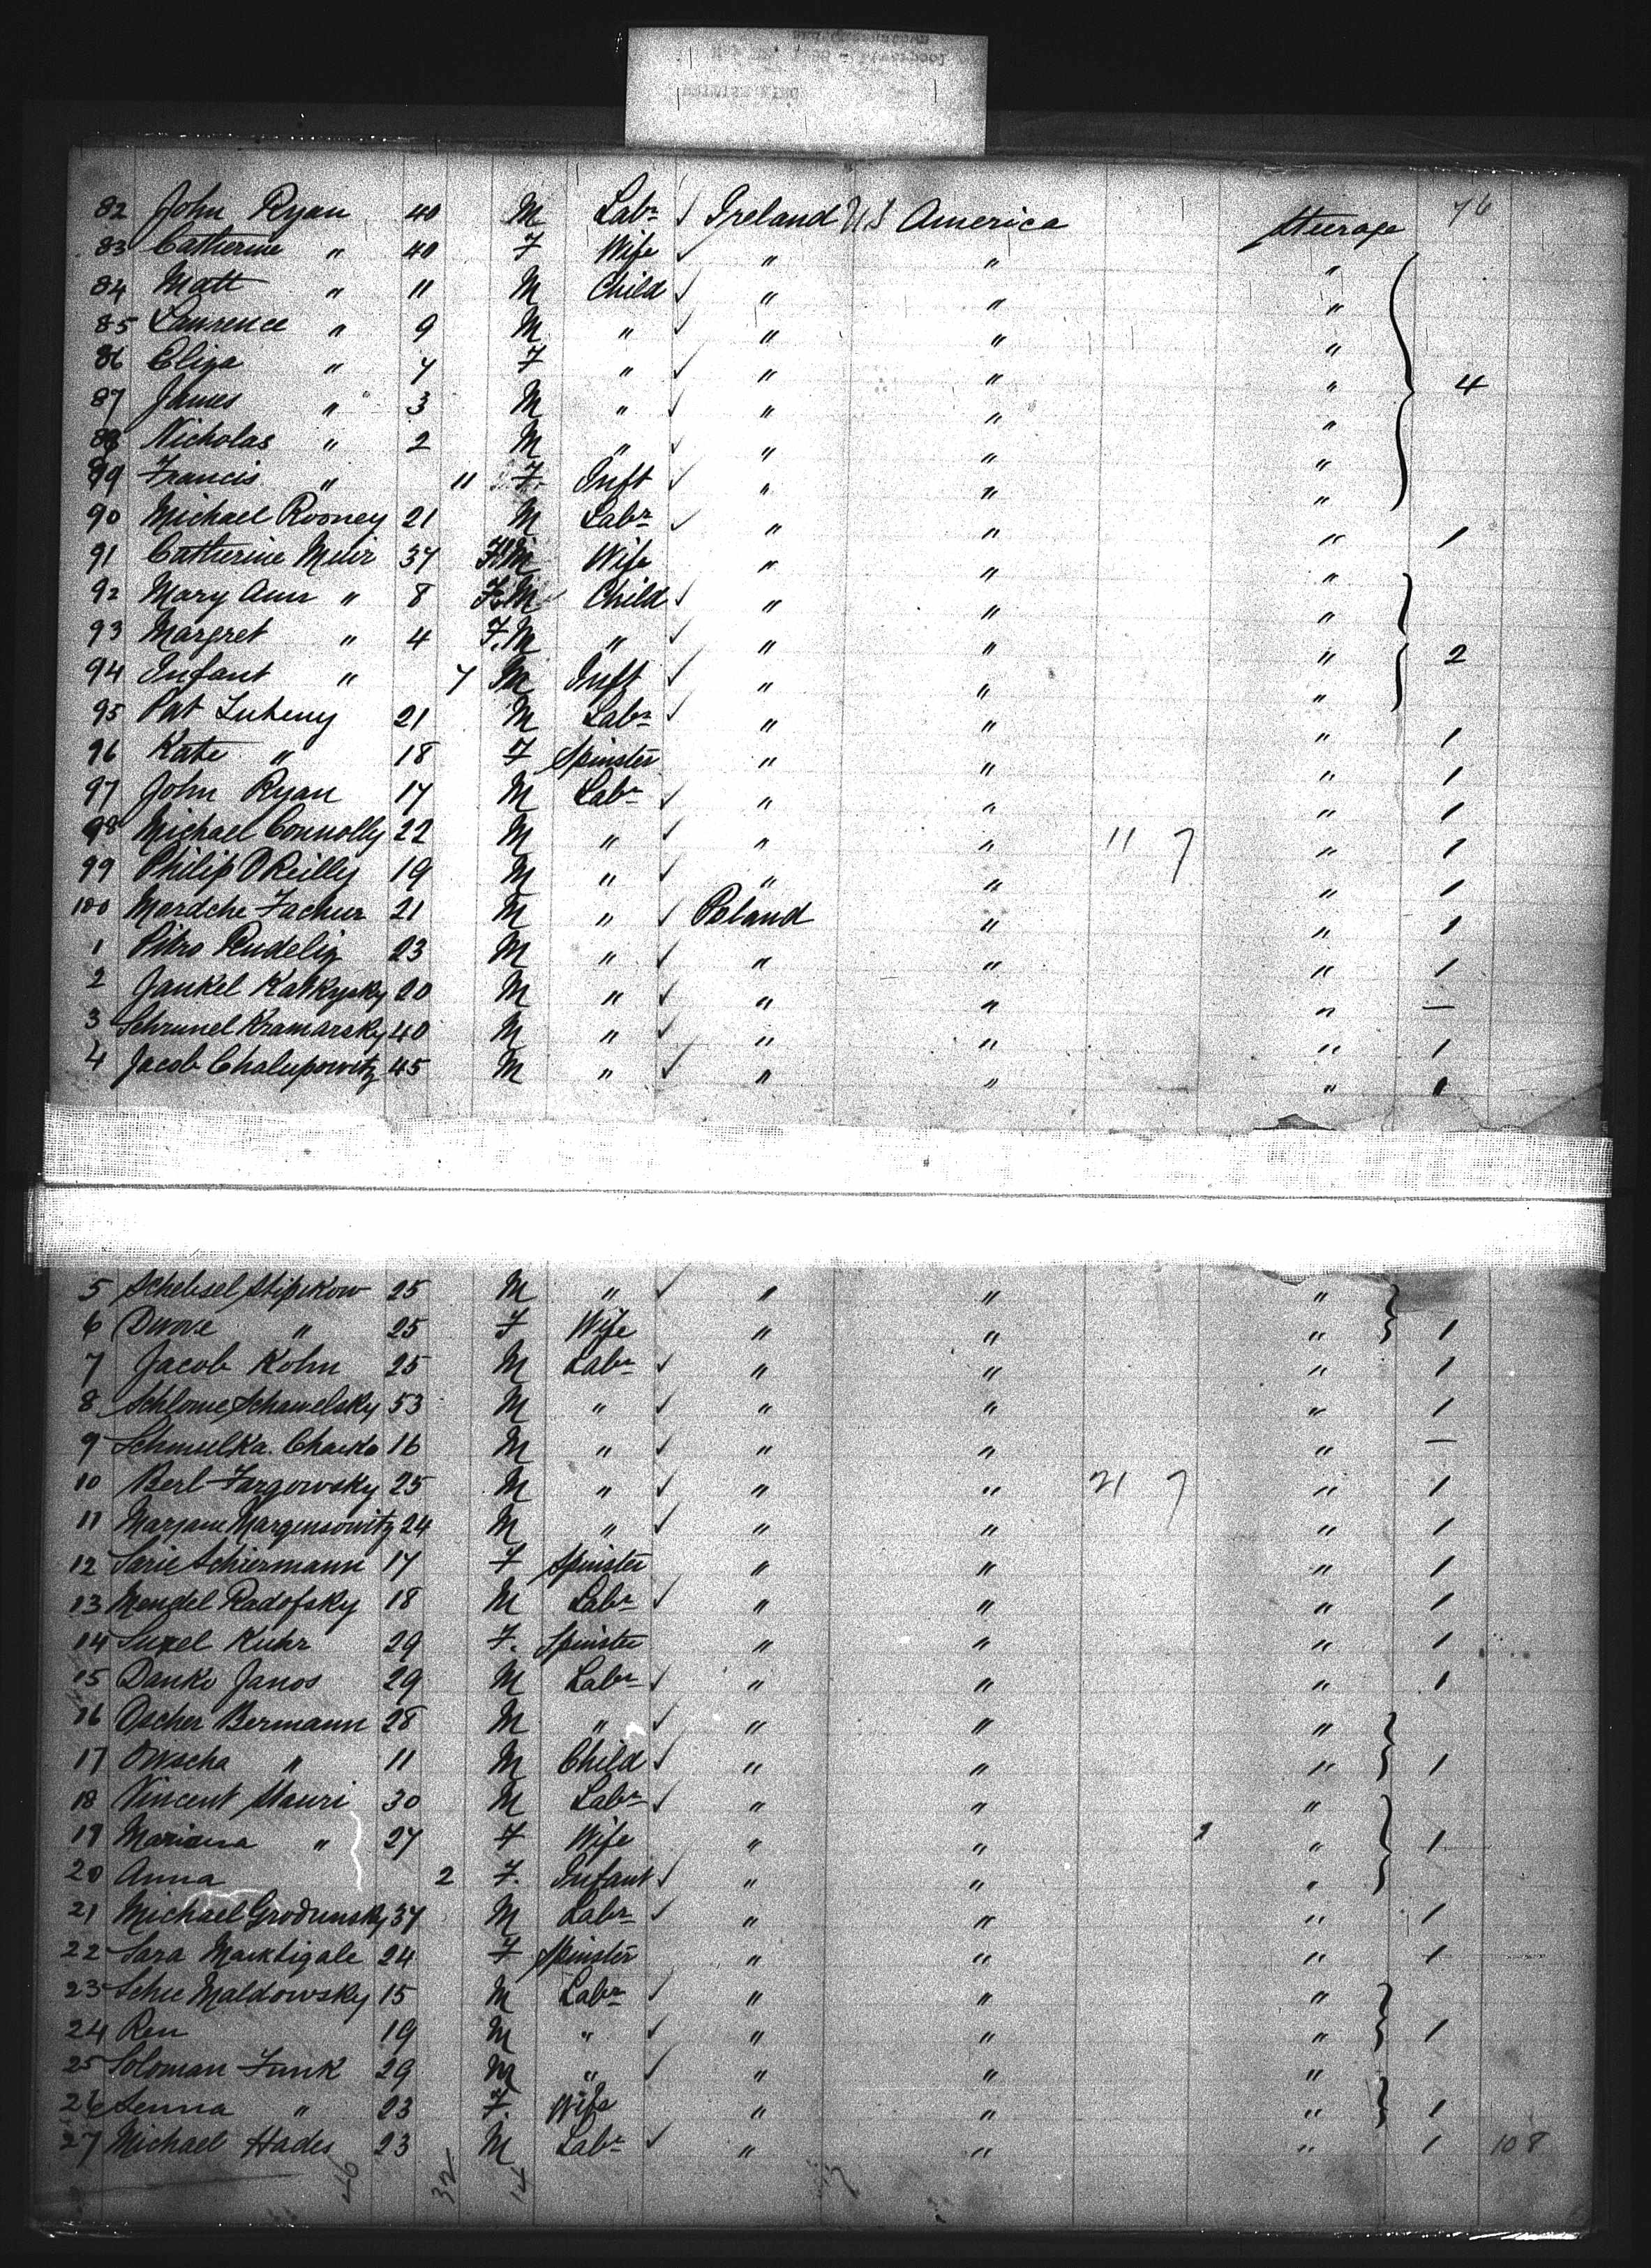 82 John Ryan 40 M Labr ✓ Ireland U S America Steerage 76
83 Catherine " 40 F Wife ✓ " " "
84 Matt " 11 M Child ✓ " " "
85 Laurence " 9 M " ✓ " " "
86 Eliza " 7 F " ✓ " " "
87 James " 3 M " ✓ " " " 4
88 Nicholas " 2 M " ✓ " " "
89 Francis " 11 F Inft ✓ " " "
90 Michael Rooney 21 M Labr ✓ " " " 1
91 Catherine Muir 37 F M Wife " " "
92 Mary Ann " 8 F M Child ✓ " " "
93 Margret " 4 F. M " ✓ " " " 2
94 Infant " 7 M Inft ✓ " " "
95 Pat 21 M Labr ✓ " " " 1
96 Kate " 18 F Spinster " " " 1
97 John Ryan 17 M Labr ✓ " " " 1
98 Michael Connolly 22 M " ✓ " " 11 7 " 1
99 Philip O Reilly 19 M " ✓ " " " 1
100 Mardche 21 M " ✓ Poland " " 1
1 Pitro 23 M " ✓ " " " 1
2 Jankel 20 M " ✓ " " " —
3 Kramarsky 40 M " ✓ " " " 1
4 Jacob Chalupowitz 45 M " ✓ " " " 1
5 25 M " ✓ " " "
6 " 25 F Wife " " " 1
7 Jacob Kohn 25 M Labr ✓ " " " 1
8 Schlome 53 M " ✓ " " " 1
9 Schmulka 16 M " ✓ " " " —
10 Berl 25 M " ✓ " " 21 7 " 1
11 24 M " ✓ " " " 1
12 Sarie Schiermann 17 F Spinster " " " 1
13 Mendel Radofsky 18 M Labr ✓ " " " 1
14 Kuhr 29 F. Spinster " " " 1
15 Danko Janos 29 M Labr ✓ " " " 1
16 Oscher Bermann 28 M " ✓ " " "
17 " 11 M Child ✓ " " " 1
18 Vincent 30 M Labr ✓ " " "
19 Mariana " 27 F Wife " " " 1
20 Anna 2 F. Infant ✓ " " "
21 Michael 37 M Labr ✓ " " " 1
22 Sara 24 F Spinster " " " 1
23 Maldowsky 15 M Labr ✓ " " "
24 19 M " ✓ " " " 1
25 Soloman Funk 29 M " ✓ " " "
26 " 23 F. Wife " " " 1
27 Michael Hades 23 M Labr ✓ " " " 1 108
46 32 14